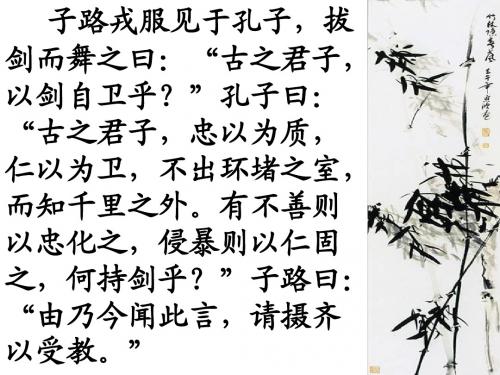 子路戎服见于孔子，拔
剑而舞之曰：“古之君子，
以剑自卫乎？”孔子曰：
“古之君子，忠以为质，
仁以为卫，不出环堵之室，
而知千里之外。有不善则
以忠化之，侵暴则以仁固
之，何持剑乎？”子路曰：
“由乃今闻此言，请摄齐
以受教。”